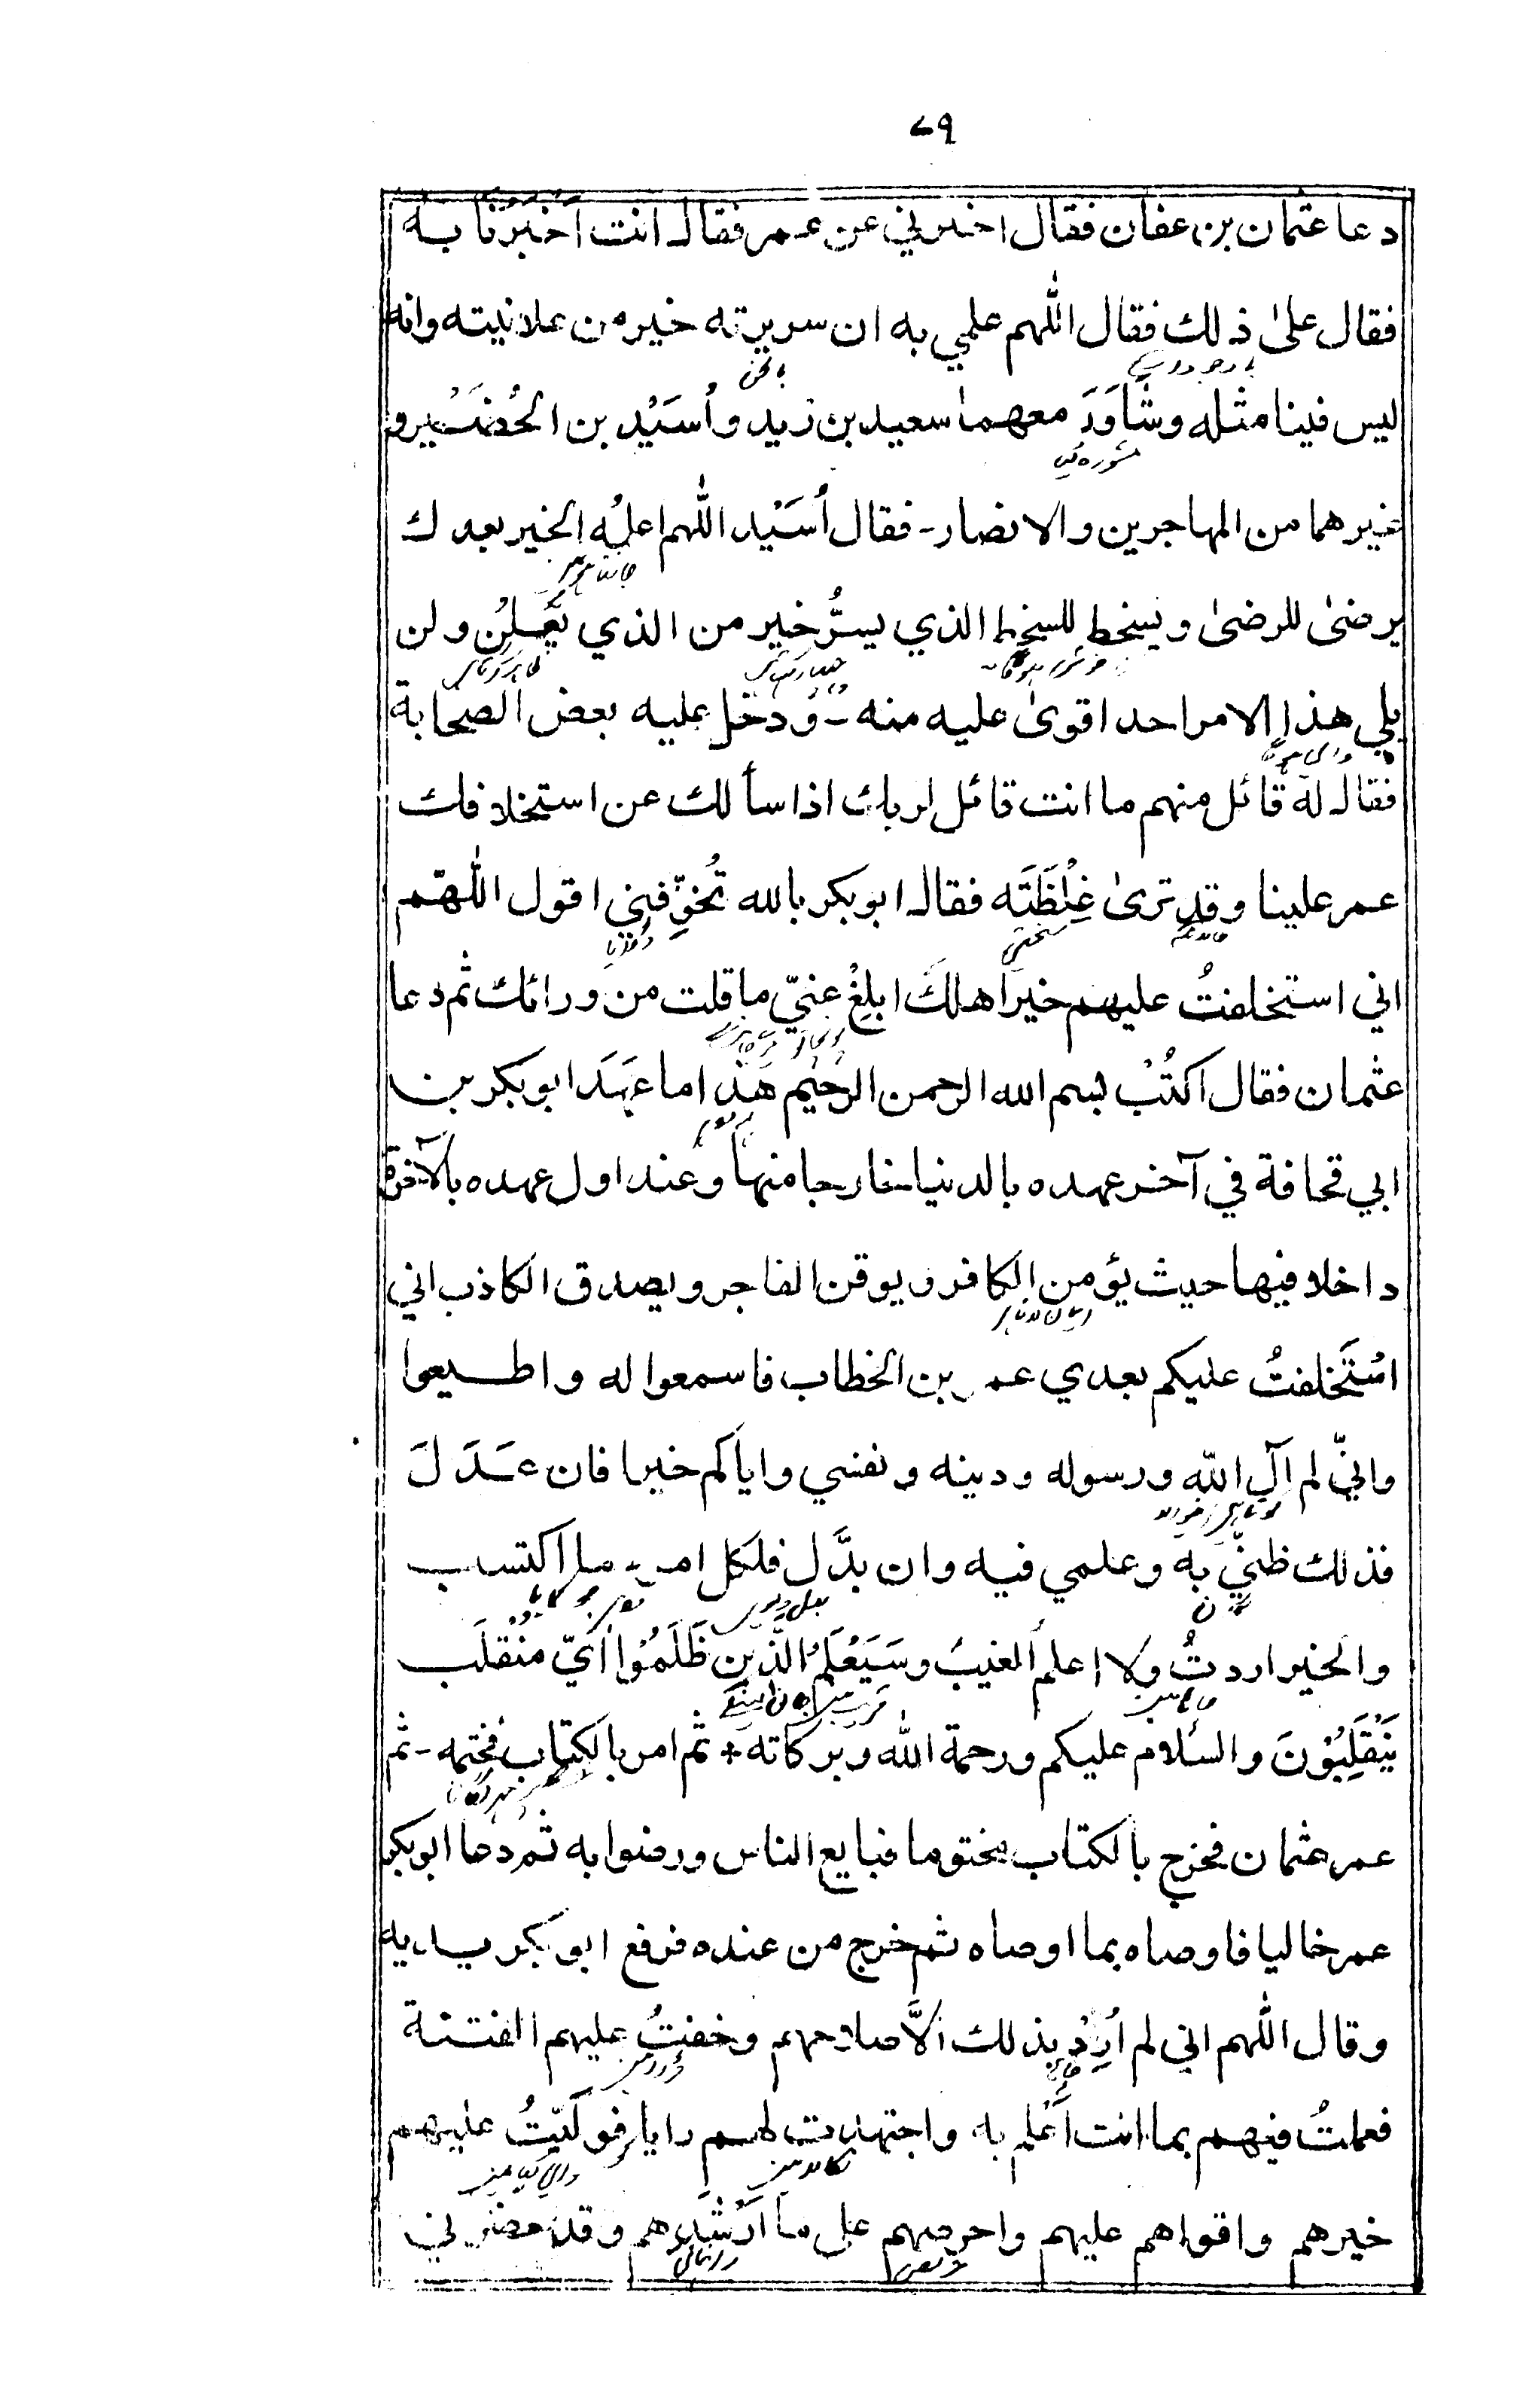 ٧٩
دعا عثمان بن عفان فقال اخبرني عن عمر فقال انت اَخْبَرُنا به
فقال علىٰ ذلك فقال اللّٰهم علمي به ان سريرته خير من علانيته وانه
ليس فينا مثله وشَاوَرَ معهما سعيد بن زيد واُسَيْد بن الحُضَيْر و
غيرهما من المهاجرين والانصار۔ فقال اُسَيْد اللّٰهم اعلمُه الخير بعدك
يرضىٰ للرضىٰ ويسخط للسخط الذي يسرُّ خير من الذي يُعْلِنُ ولن
يلي هذا الامر احد اقوىٰ عليه منه۔ ودخل عليه بعض الصحابة
فقال له قائل منهم ما انت قائل لربك اذا سألك عن استخلافك
عمر علينا وقد ترىٰ غِلْظَتَه فقال ابو بكر بالله تُخوِّفني اقول اللّٰهم
اني استخلفتُ عليهم خير اهلك ابلِغْ عنيّ ما قلت من ورائك ثم دعا
عثمان فقال اكتُبْ بسم الله الرحمن الرحيم هذا ما عَهِدَ ابو بكر بن
ابي قحافة في آخر عهده بالدنيا خارجا منها وعند اول عهده بالآخرة
داخلا فيها حيث يؤمن الكافر ويوقن الفاجر ويصدق الكاذب اني
اسْتَخلفتُ عليكم بعدي عمر بن الخطاب فاسمعوا له واطيعوا
وانيّ لم آلِ اللّٰه ورسوله ودينه ونفسي واياكم خيرا فان عَدَلَ
فذلك ظنّي به وعلمي فيه وان بدَّل فلكل امرء ما اكتسب
والخير اردتُ ولا اعلم الغيبَ وسَيَعْلَمُ الَّذِين ظَلَمُوْا اَيَّ منْقلَب
يَّنْقَلِبُوْنَ والسلام عليكم ورحمة اللّٰه وبركاته + ثم امر بالكتاب فختمه۔ ثم
عمر عثمان فخرج بالكتاب مختوما فبايع الناس ورضوا به ثم دعا ابو بكر
عمر خاليا فاوصاه بما اوصاه ثم خرج من عنده فرفع ابو بكر يديه
وقال اللّٰهم اني لم اُرِدْ بذلك الَّا صلاحهم وخفتُ عليهم الفتنة
فعملتُ فيهم بما انت اَعْلم به واجتهدت لهم رايا فولّيتُ عليهم
خيرهم واقواهم عليهم واحرصهم على ما اَرْشَدَهم وقد حضرني